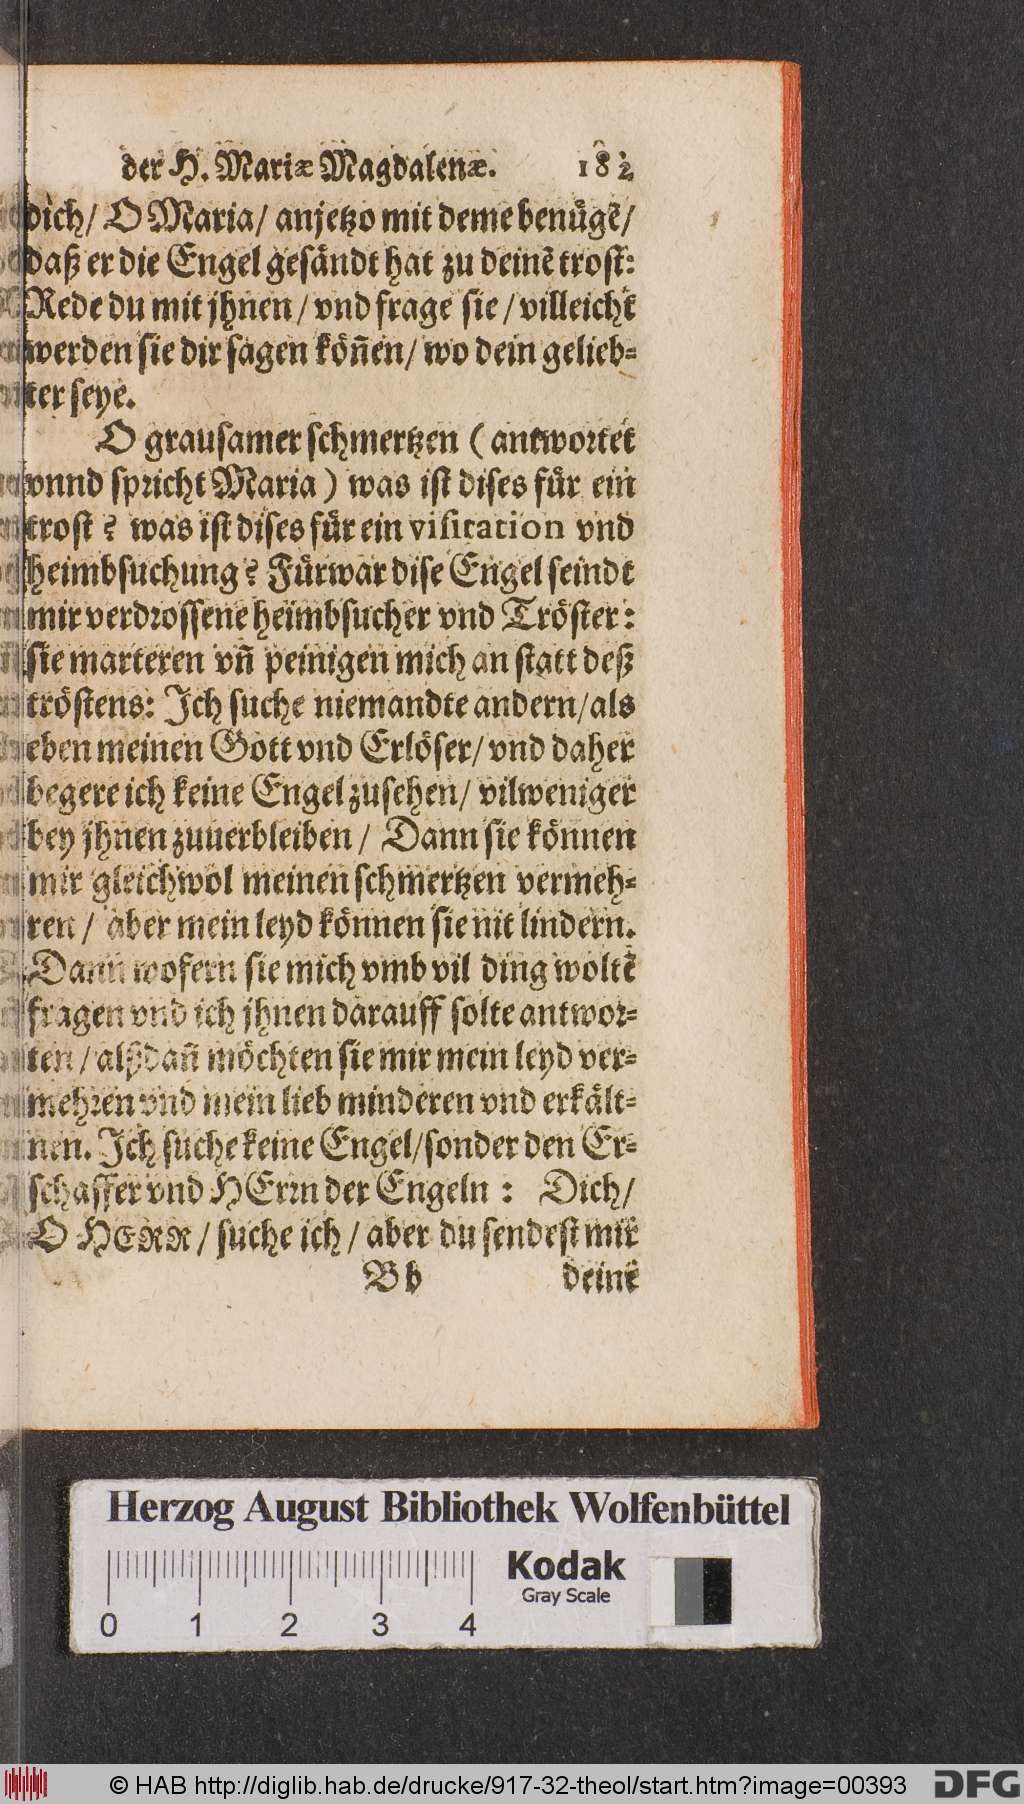 der H. Mariæ Magdalenæ. 182
dich/ O Maria/ anjetzo mit deme benügẽ/
daß er die Engel gesändt hat zu deinẽ trost:
Rede du mit jhnen/ vnd frage sie/ villeicht
werden sie dir sagen köñen/ wo dein gelieb-
ter seye.
O grausamer schmertzen (antwortet
vnnd spricht Maria) was ist dises für ein
trost? was ist dises für ein visitation vnd
heimbsuchung? Fürwar dise Engel seindt
mir verdrossene heimbsucher vnd Tröster:
sie marteren vñ peinigen mich an statt deß
tröstens: Ich suche niemandte andern/ als
eben meinen Gott vnd Erlöser/ vnd daher
begere ich keine Engel zusehen/ vilweniger
bey jhnen zuuerbleiben/ Dann sie können
mir gleichwol meinen schmertzen vermeh-
ren/ aber mein leyd können sie nit lindern.
Dann wofern sie mich vmb vil ding woltẽ
fragen vnd ich jhnen darauff solte antwor-
ten/ alßdañ möchten sie mir mein leyd ver-
mehren vnd mein lieb minderen vnd erkält-
nen. Ich suche keine Engel/ sonder den Er-
schaffer vnd HErrn der Engeln: Dich/
O HERR/ suche ich/ aber du sendest mir
Bb deinẽ
Herzog August Bibliothek Wolfenbüttel
Kodak
Gray Scale
0 1 2 3 4
© HAB http://diglib.hab.de/drucke/917-32-theol/start.htm?image=00393
DFG